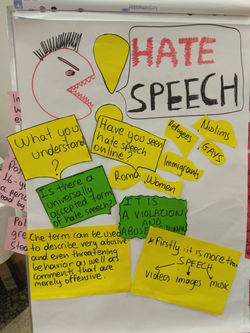 HATE
SPEECH
What you
understand
?
Have you seen
hate speech
online?
Refugees
Muslims
GAYS
Immigrants
Roma
Women
Is there a
universally
accepted term
of hate speech?
IT IS
A VIOLATION
AND
ABUSE
The term can be used
to describe very abusive
and even threatening
behavior as well as
comments that are
merely offensive.
Firstly it is more than
SPEECH
videos images music